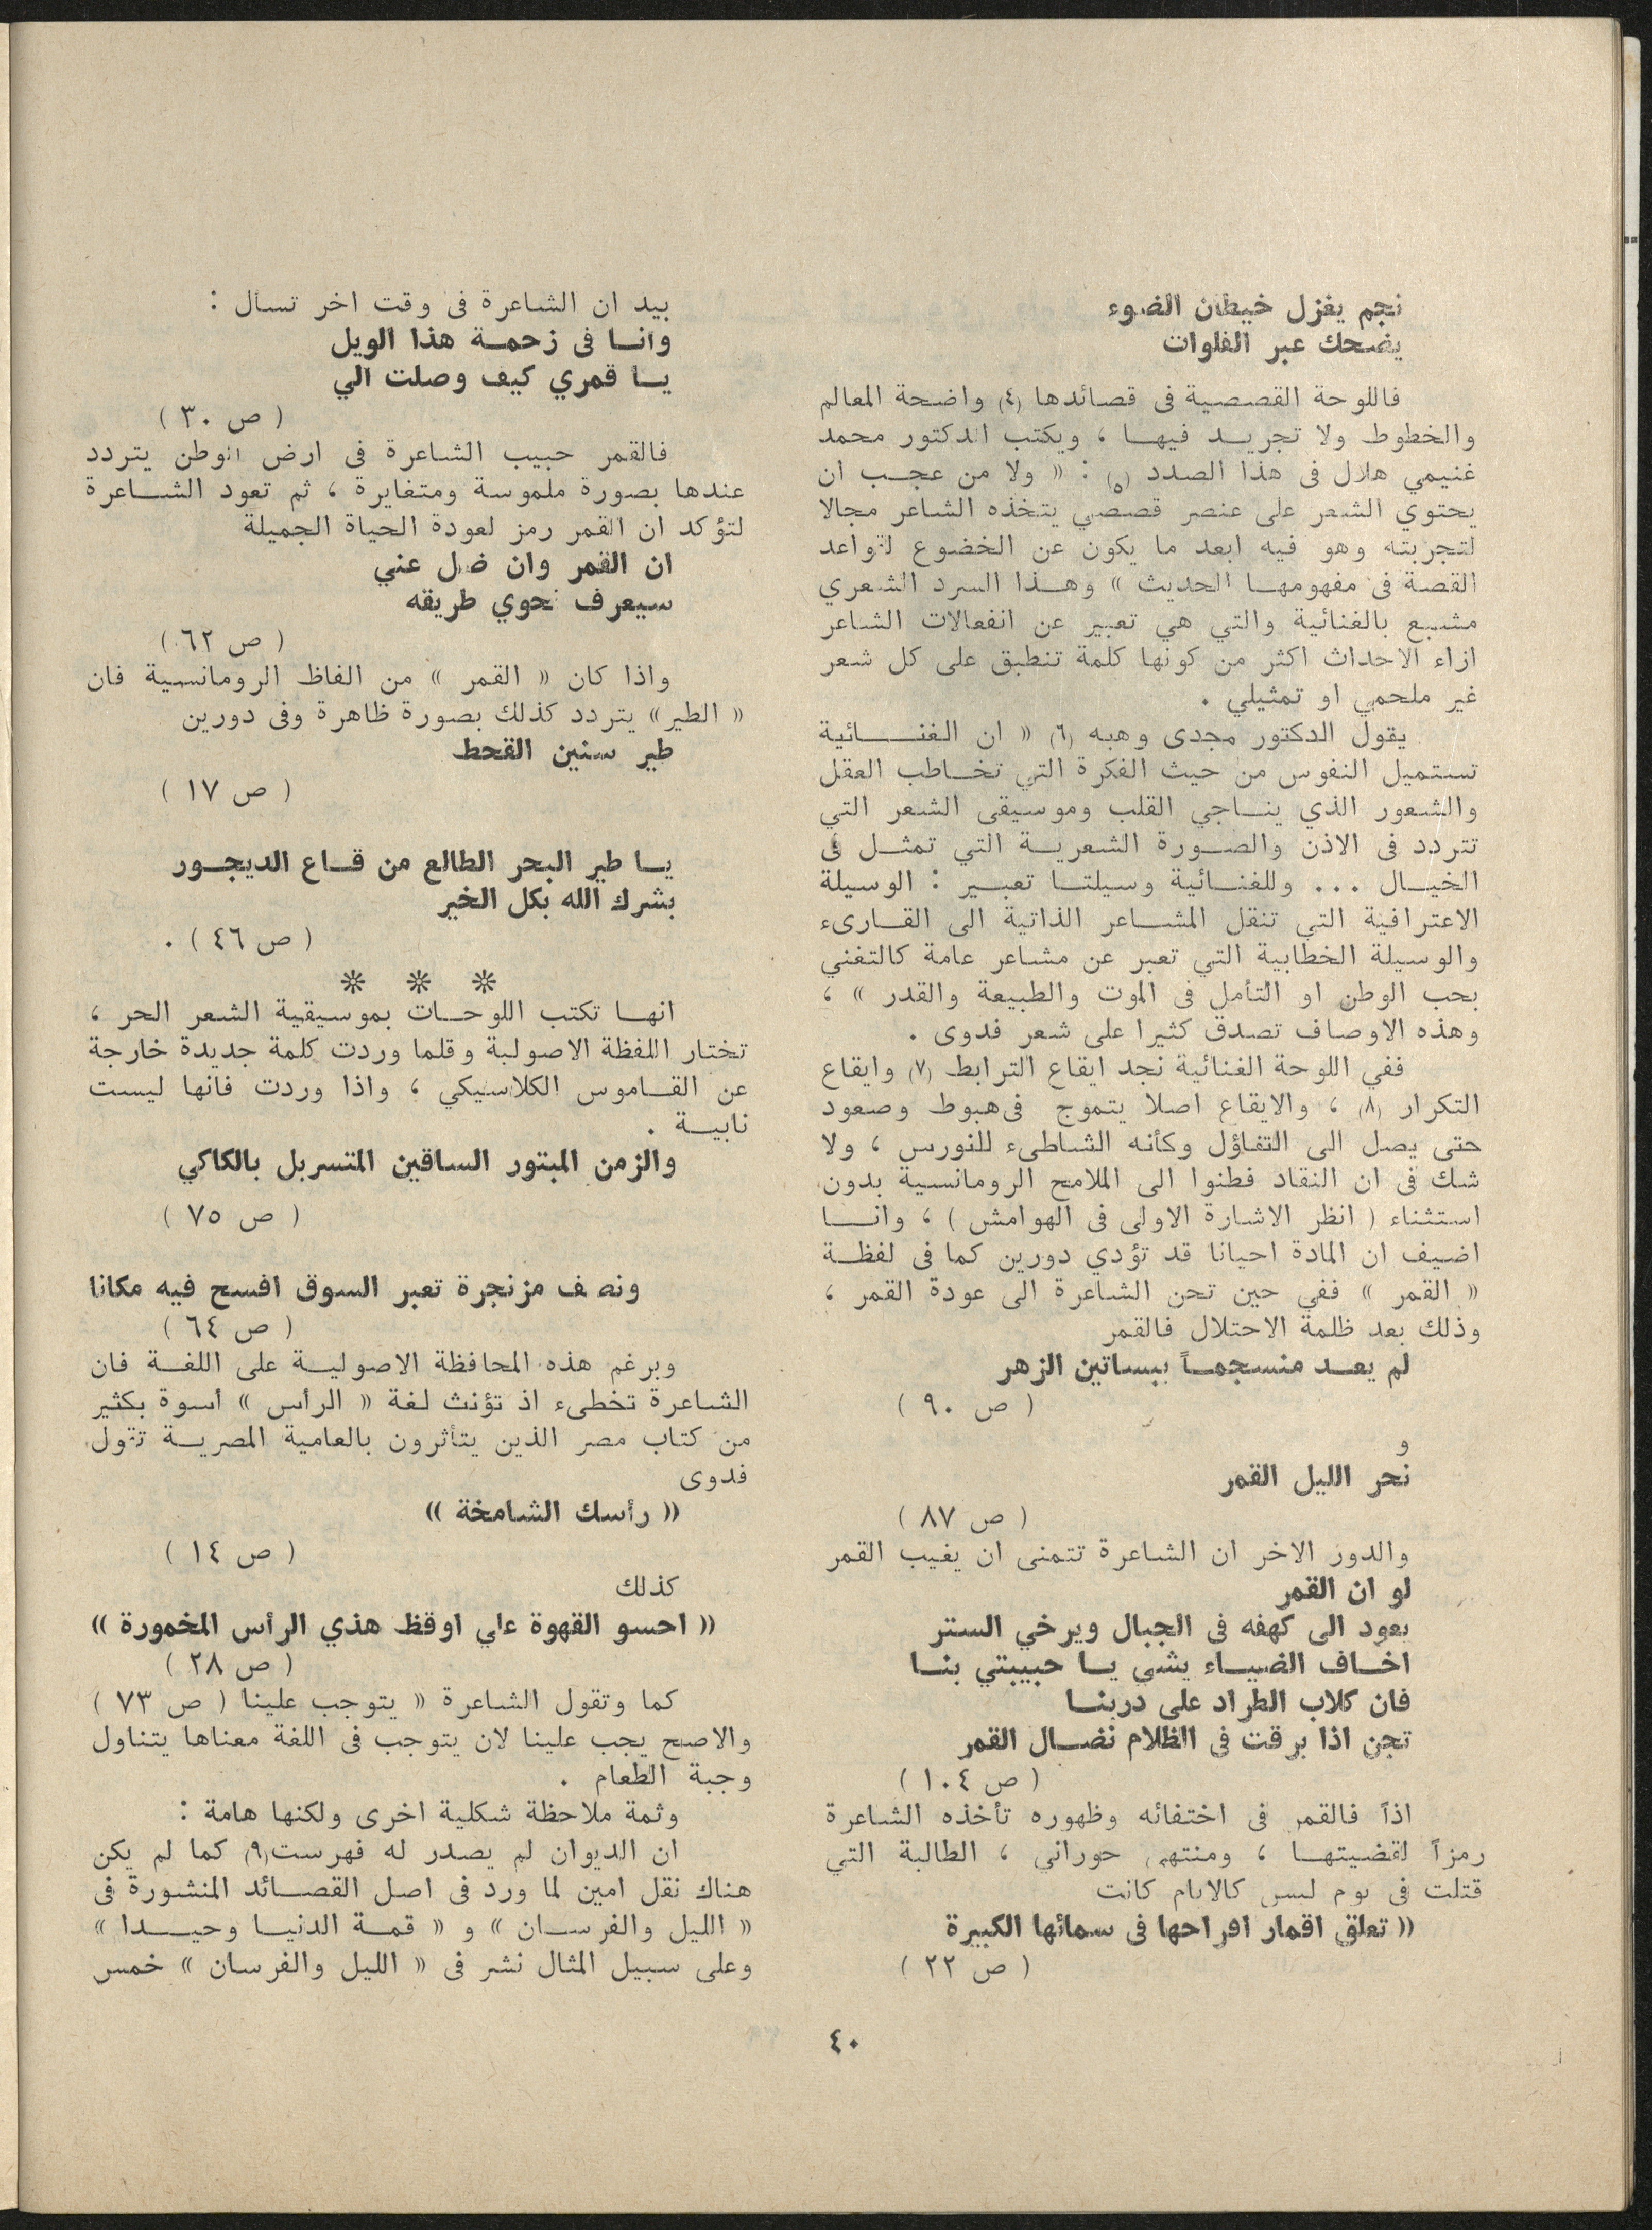 نجم يغزل خيطان الضوء
يضحك عبر الفلوات
فاللوحة القصصية فى قصائدها (٤) واضحة المعالم
والخطوط ولا تجريــد فيهــا ، ويكتب الدكتور محمد
غنيمي هلال فى هذا الصدد (٥) : « ولا من عجــب ان
يحتوي الشعر على عنصر قصصي يتخذه الشاعر مجالا
لتجربته وهو فيه ابعد ما يكون عن الخضوع لقواعد
القصة فى مفهومهــا الحديث » وهــذا السرد الشعري
مشبع بالغنائية والتي هي تعبير عن انفعالات الشاعر
ازاء الاحداث اكثر من كونها كلمة تنطبق على كل شعر
غير ملحمي او تمثيلي .
يقول الدكتور مجدى وهبه (٦) « ان الغنـــائية
تستميل النفوس من حيث الفكرة التي تخــاطب العقل
والشعور الذي ينــاجي القلب وموسيقى الشعر التي
تتردد فى الاذن والصــورة الشعريــة التي تمثــل فى
الخيــال ... وللغنــائية وسيلتــا تعبــير : الوسيلة
الاعترافية التي تنقل المشــاعر الذاتية الى القــارىء
والوسيلة الخطابية التي تعبر عن مشاعر عامة كالتغني
بحب الوطن او التأمل فى الموت والطبيعة والقدر » ،
وهذه الاوصاف تصدق كثيرا على شعر فدوى .
ففي اللوحة الغنائية نجد ايقاع الترابط (٧) وايقاع
التكرار (٨) ، والايقاع اصلا يتموج فى هبوط وصعود
حتى يصل الى التفاؤل وكأنه الشاطىء للنورس ، ولا
شك فى ان النقاد فطنوا الى الملامح الرومانسية بدون
استثناء ( انظر الاشارة الاولى فى الهوامش ) ، وانــا
اضيف ان المادة احيانا قد تؤدي دورين كما فى لفظــة
« القمر » ففي حين تحن الشاعرة الى عودة القمر ،
وذلك بعد ظلمة الاحتلال فالقمر
لم يعــد منسجمــاً ببساتين الزهر
( ص ٩٠ )
و
نحر الليل القمر
( ص ٨٧ )
والدور الاخر ان الشاعرة تتمنى ان يغيب القمر
لو ان القمر
يعود الى كهفه فى الجبال ويرخي الستر
اخــاف الضيــاء يشي يــا حبيبتي بنــا
فان كلاب الطراد على دربنــا
تجن اذا برقت فى الظلام نضــال القمر
( ص ١٠٤ )
اذاً فالقمر فى اختفائه وظهوره تأخذه الشاعرة
رمزاً لقضيتهــا ، ومنتهى حوراني ، الطالبة التي
قتلت فى يوم ليس كالايام كانت
« تعلق اقمار افراحها فى سمائها الكبيرة
( ص ٢٢ )
بيد ان الشاعرة فى وقت اخر تسأل :
وانــا فى زحمــة هذا الويل
يــا قمري كيف وصلت الي
( ص ٣٠ )
فالقمر حبيب الشاعرة فى ارض الوطن يتردد
عندها بصورة ملموسة ومتغايرة ، ثم تعود الشــاعرة
لتؤكد ان القمر رمز لعودة الحياة الجميلة
ان القمر وان ضل عني
سيعرف نحوي طريقه
( ص ٦٢ )
واذا كان « القمر » من الفاظ الرومانسية فان
« الطير» يتردد كذلك بصورة ظاهرة وفى دورين
طير سنين القحط
( ص ١٧ )
يــا طير البحر الطالع من قــاع الديجــور
بشرك الله بكل الخير
( ص ٤٦ ) .
❊ ❊ ❊
انهــا تكتب اللوحــات بموسيقية الشعر الحر ،
تختار اللفظة الاصولية وقلما وردت كلمة جديدة خارجة
عن القــاموس الكلاسيكي ، واذا وردت فانها ليست
نابيــة .
والزمن المبتور الساقين المتسربل بالكاكي
( ص ٧٥ )
ونصف مزنجرة تعبر السوق افسح فيه مكانا
( ص ٦٤ )
وبرغم هذه المحافظة الاصوليــة على اللغــة فان
الشاعرة تخطىء اذ تؤنث لغة « الرأس » أسوة بكثير
من كتاب مصر الذين يتأثرون بالعامية المصريــة تقول
فدوى
« رأسك الشامخة »
( ص ١٤ )
كذلك
« احسو القهوة علي اوقظ هذي الرأس المخمورة »
( ص ٢٨ )
كما وتقول الشاعرة « يتوجب علينا ( ص ٧٣ )
والاصح يجب علينا لان يتوجب فى اللغة معناها يتناول
وجبة الطعام .
وثمة ملاحظة شكلية اخرى ولكنها هامة :
ان الديوان لم يصدر له فهرست(٩) كما لم يكن
هناك نقل امين لما ورد فى اصل القصــائد المنشورة فى
« الليل والفرســان » و « قمــة الدنيــا وحيــدا »
وعلى سبيل المثال نشر فى « الليل والفرسان » خمس
٤٠